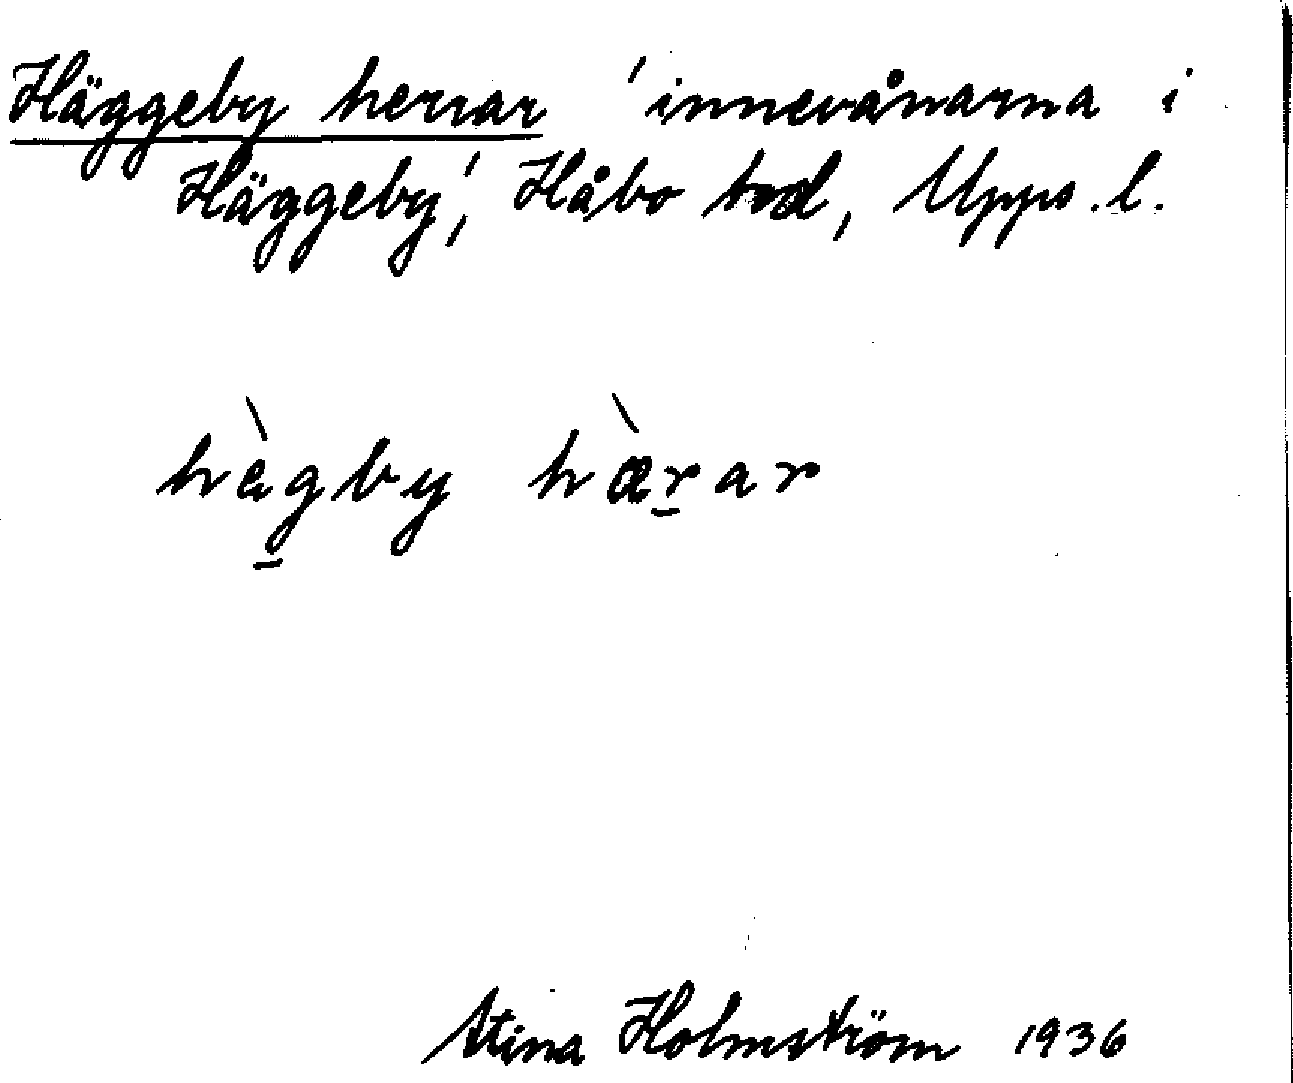 Häggeby herrar 'innevånarna i
Häggeby', Håbo hd, Upps. l.
hàgby hærar
Stina Holmström 1936